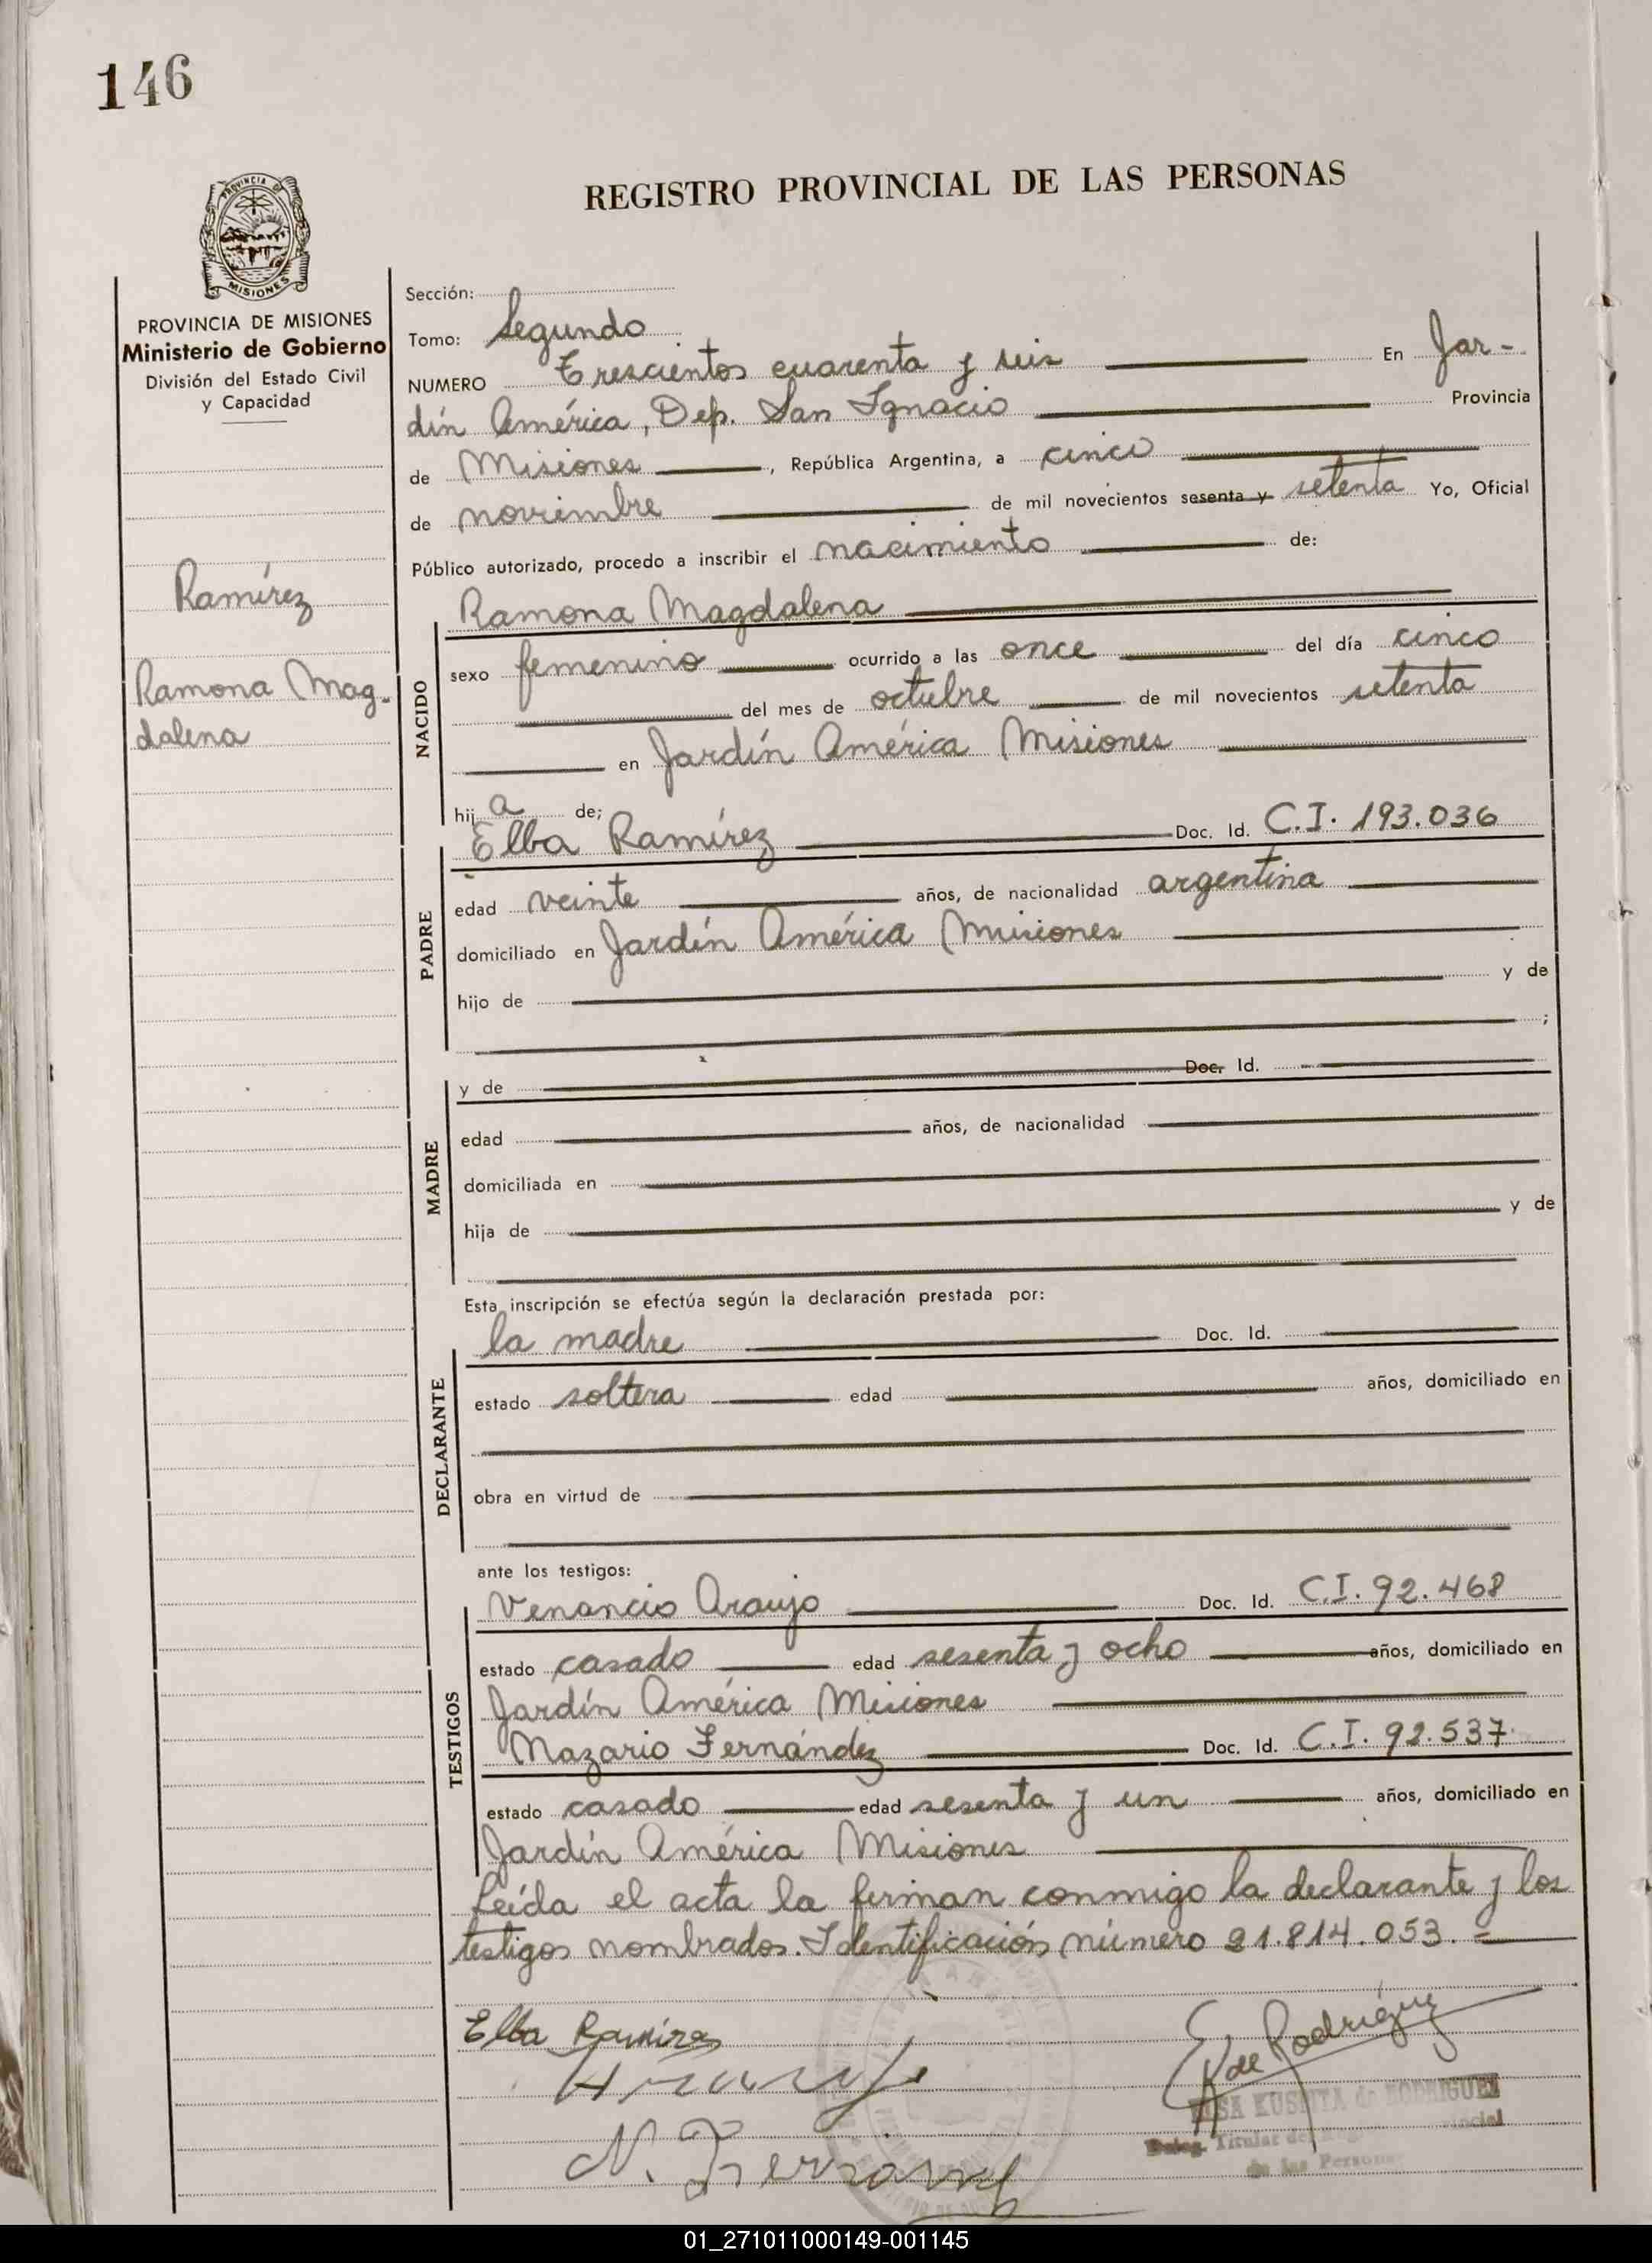 146
REGISTRO PROVINCIAL DE LAS PERSONAS
PROVINCIA DE
MISIONES
PROVINCIA DE MISIONES
Ministerio de Gobierno
División del Estado Civil
y Capacidad
Ramírez
Ramona Mag-
dalena
Sección:
Tomo: Segundo
NUMERO Trescientos cuarenta y seis En Jar-
dín América, Dep. San Ignacio Provincia
de Misiones, República Argentina, a cinco
de noviembre de mil novecientos sesenta y setenta Yo, Oficial
Público autorizado, procedo a inscribir el nacimiento de:
NACIDO
Ramona Magdalena
sexo femenino ocurrido a las once del día cinco
del mes de octubre de mil novecientos setenta
en Jardín América Misiones
hij a de;
PADRE
Elba Ramírez Doc. Id. C.I. 193.036
edad veinte años, de nacionalidad argentina
domiciliado en Jardín América Misiones
hijo de y de
;
MADRE
y de Doc. Id.
edad años, de nacionalidad
domiciliada en
hija de y de
Esta inscripción se efectúa según la declaración prestada por:
DECLARANTE
la madre Doc. Id.
estado soltera edad años, domiciliado en
obra en virtud de
ante los testigos:
TESTIGOS
Venancio Araujo Doc. Id. C.I. 92.468
estado casado edad sesenta y ocho años, domiciliado en
Jardín América Misiones
Nazario Fernández Doc. Id. C.I. 92.537
estado casado edad sesenta y un años, domiciliado en
Jardín América Misiones
Leída el acta la firman conmigo la declarante y los
testigos nombrados. Identificación número 21.814.053. =
Elba Ramírez
Araujo
N. Fernandez
de Rodríguez
de RODRIGUEZ
Deleg. Titular del
de las Personas
01_271011000149-001145